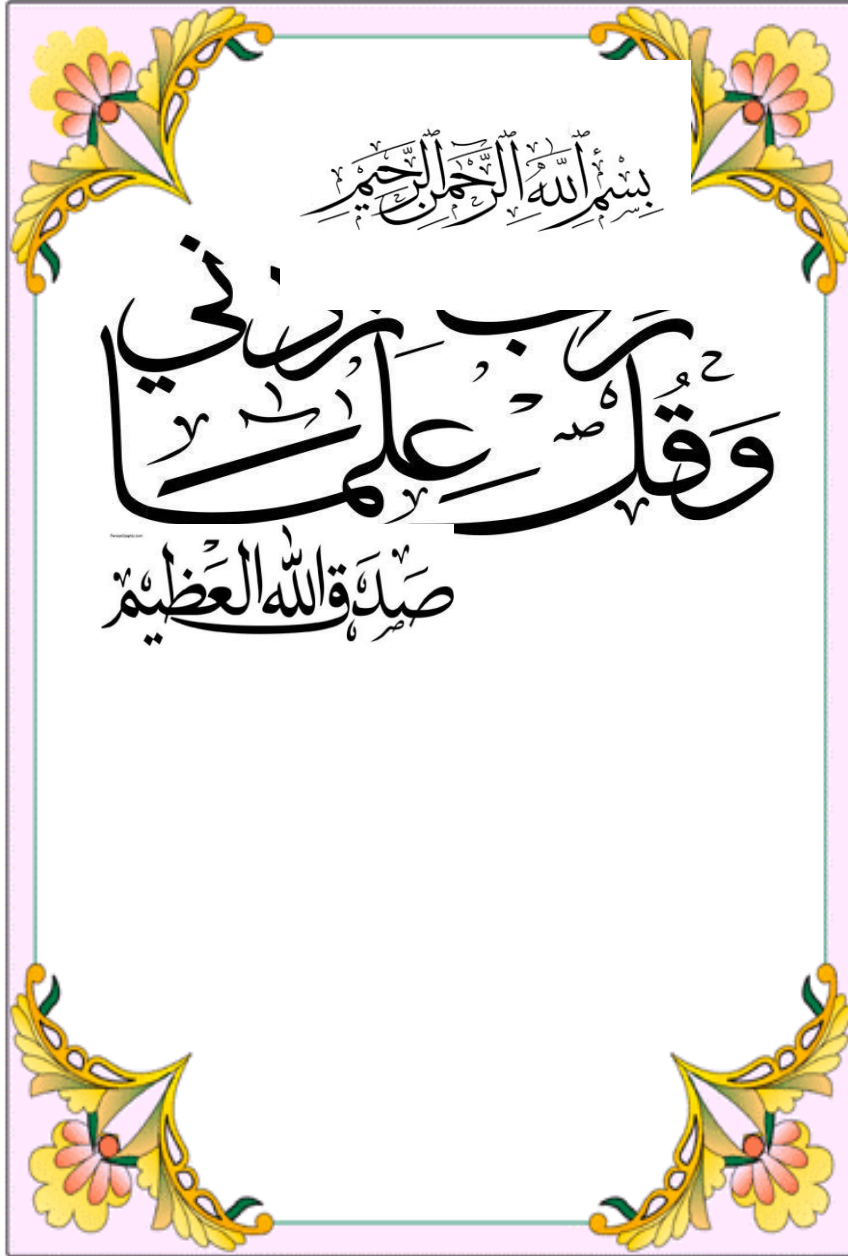 بِسْمِ ٱللَّهِ ٱلرَّحْمَٰنِ ٱلرَّحِيمِ
وَقُل رَب زدني عِلما
صَدَقَ الله العَظيم